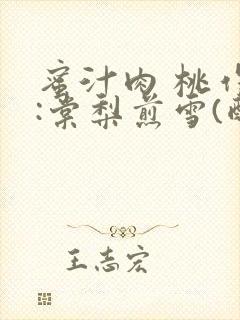 蜜汁肉桃作
:棠梨煎雪(酥
王志宏